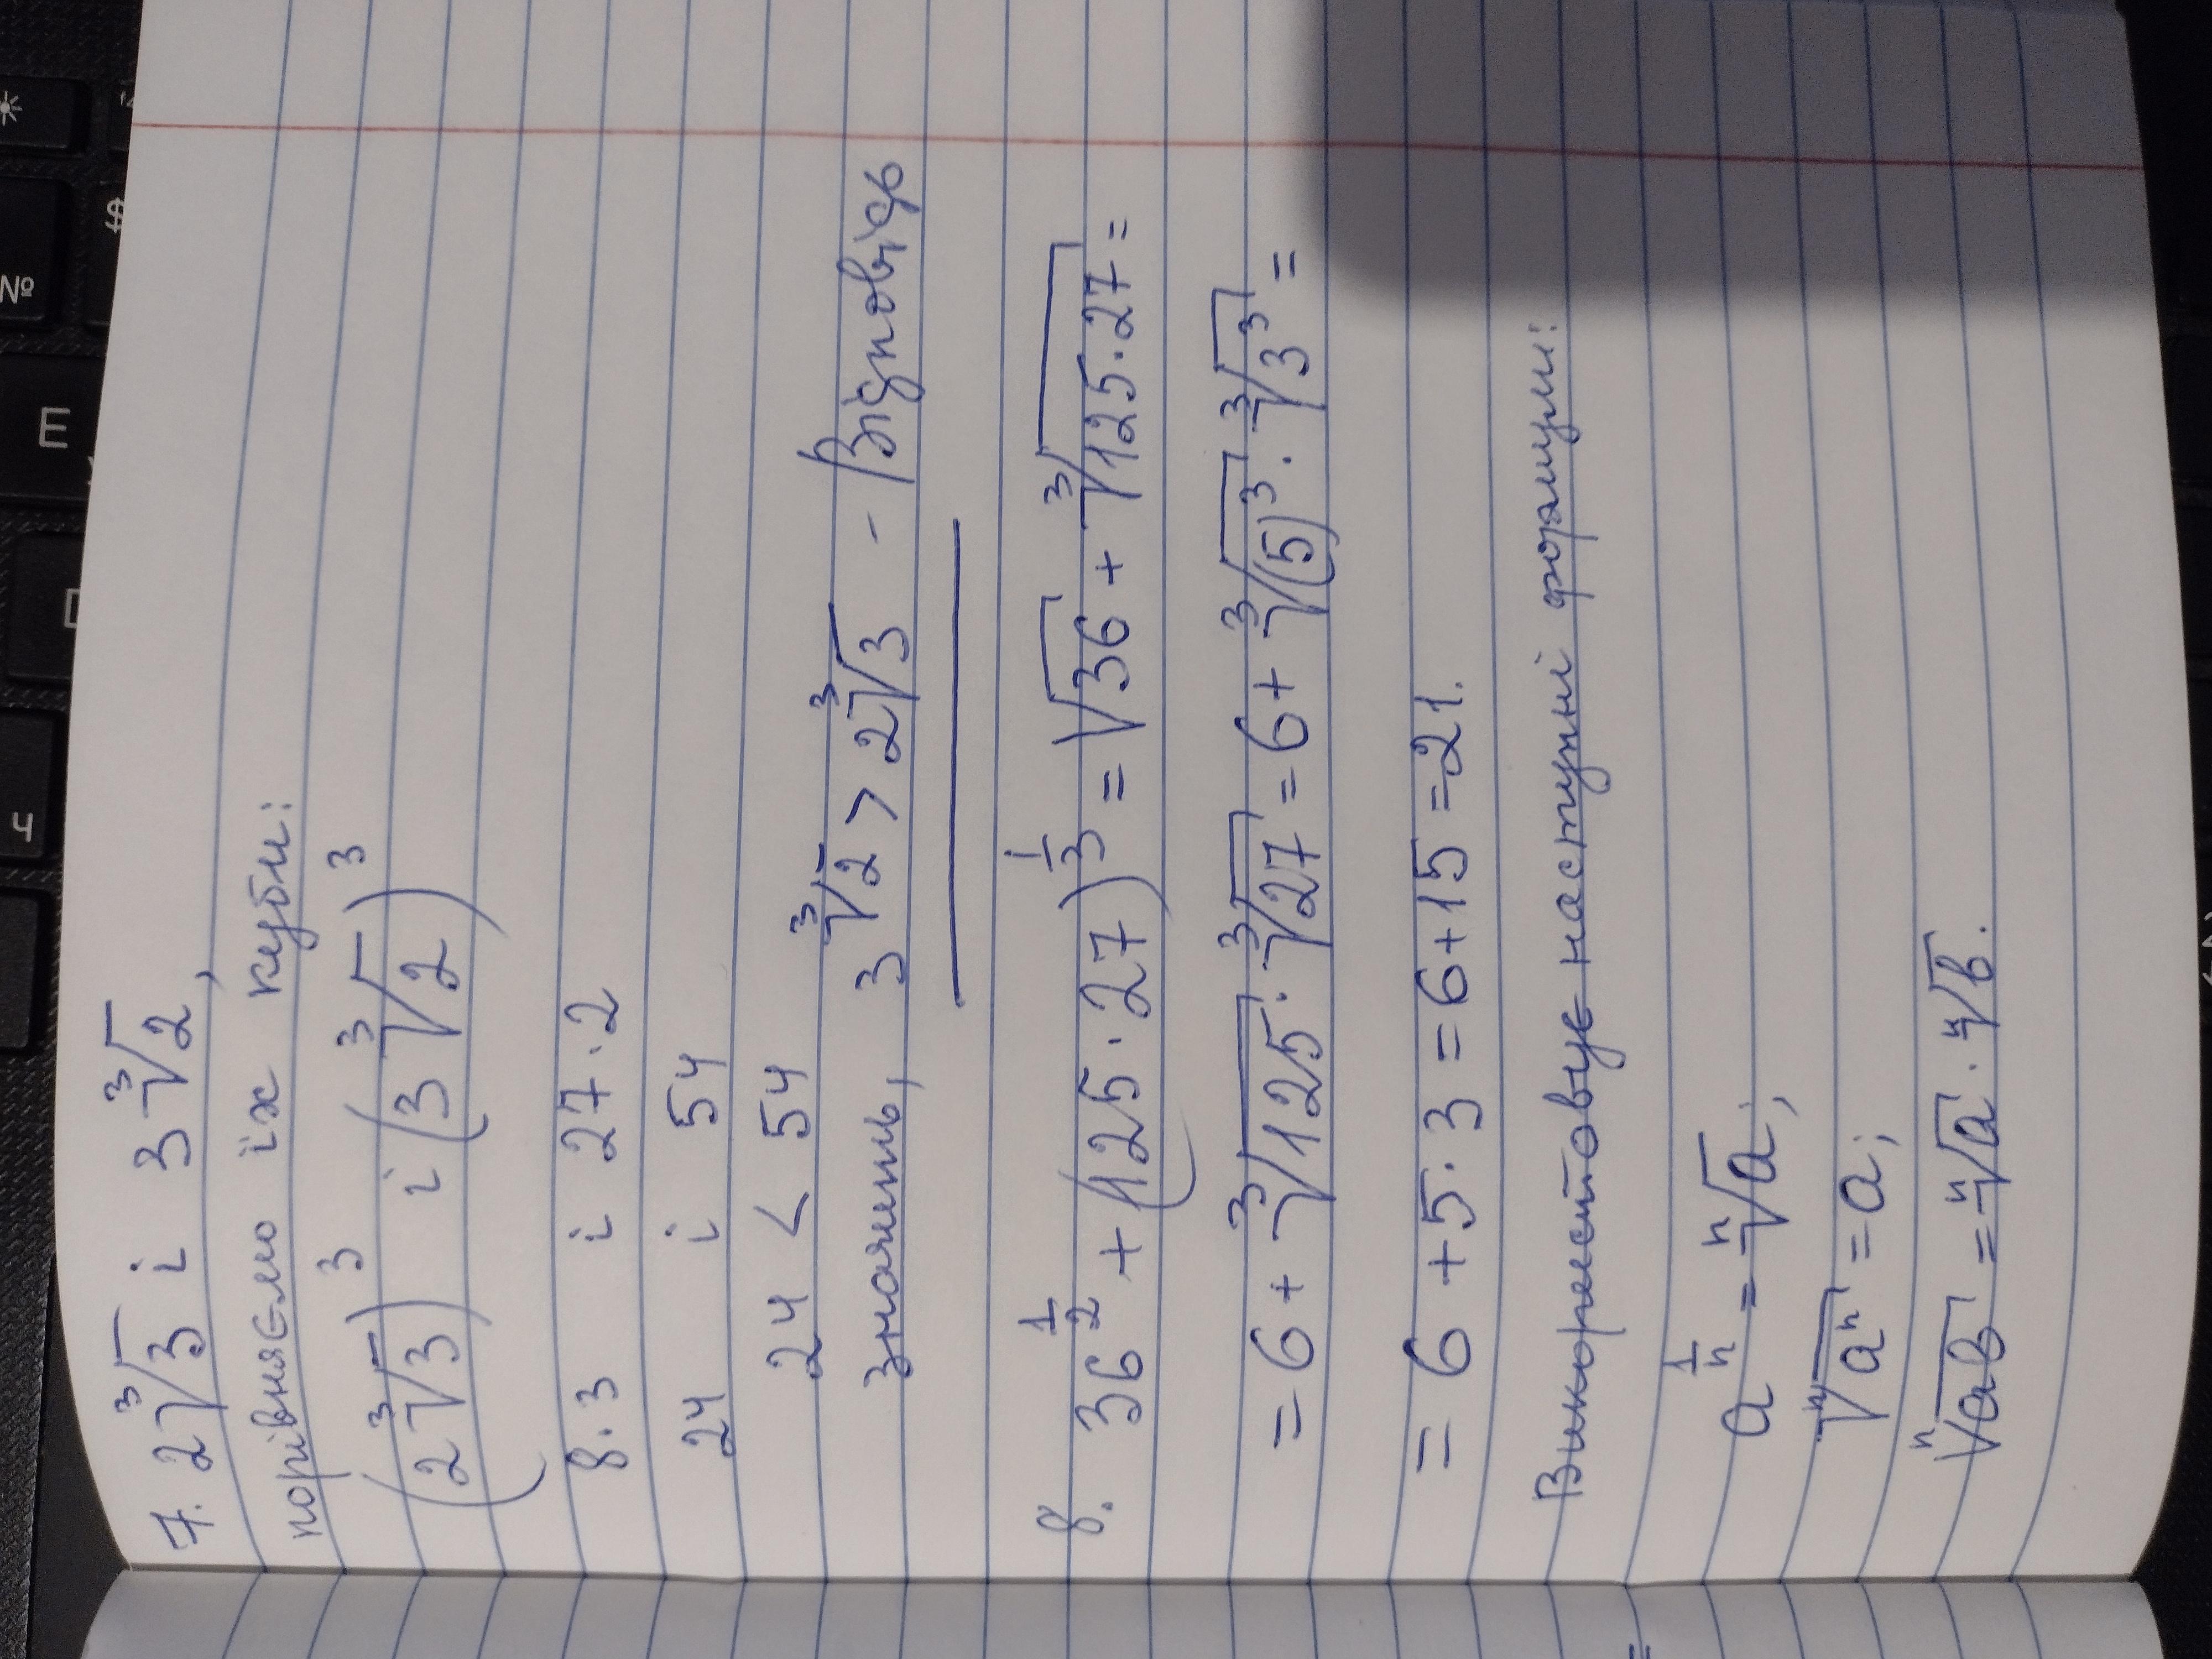 7. 2∛3 і 3∛2,
порівняємо їх куби:
(2∛3)³ і (3∛2)³
8·3 і 27·2
24 і 54
24 < 54
значить, 3∛2 > 2∛3 - Відповідь
8. 36^(1/2) + (125·27)^(1/3) = √36 + ∛(125·27) =
= 6 + ∛125 · ∛27 = 6 + ∛(5)³ · ∛3³ =
= 6 + 5·3 = 6 + 15 = 21.
Використовує наступні формули:
a^(1/n) = ⁿ√a;
ⁿ√aⁿ = a;
ⁿ√ab = ⁿ√a · ⁿ√b.
№
E
Ч
$